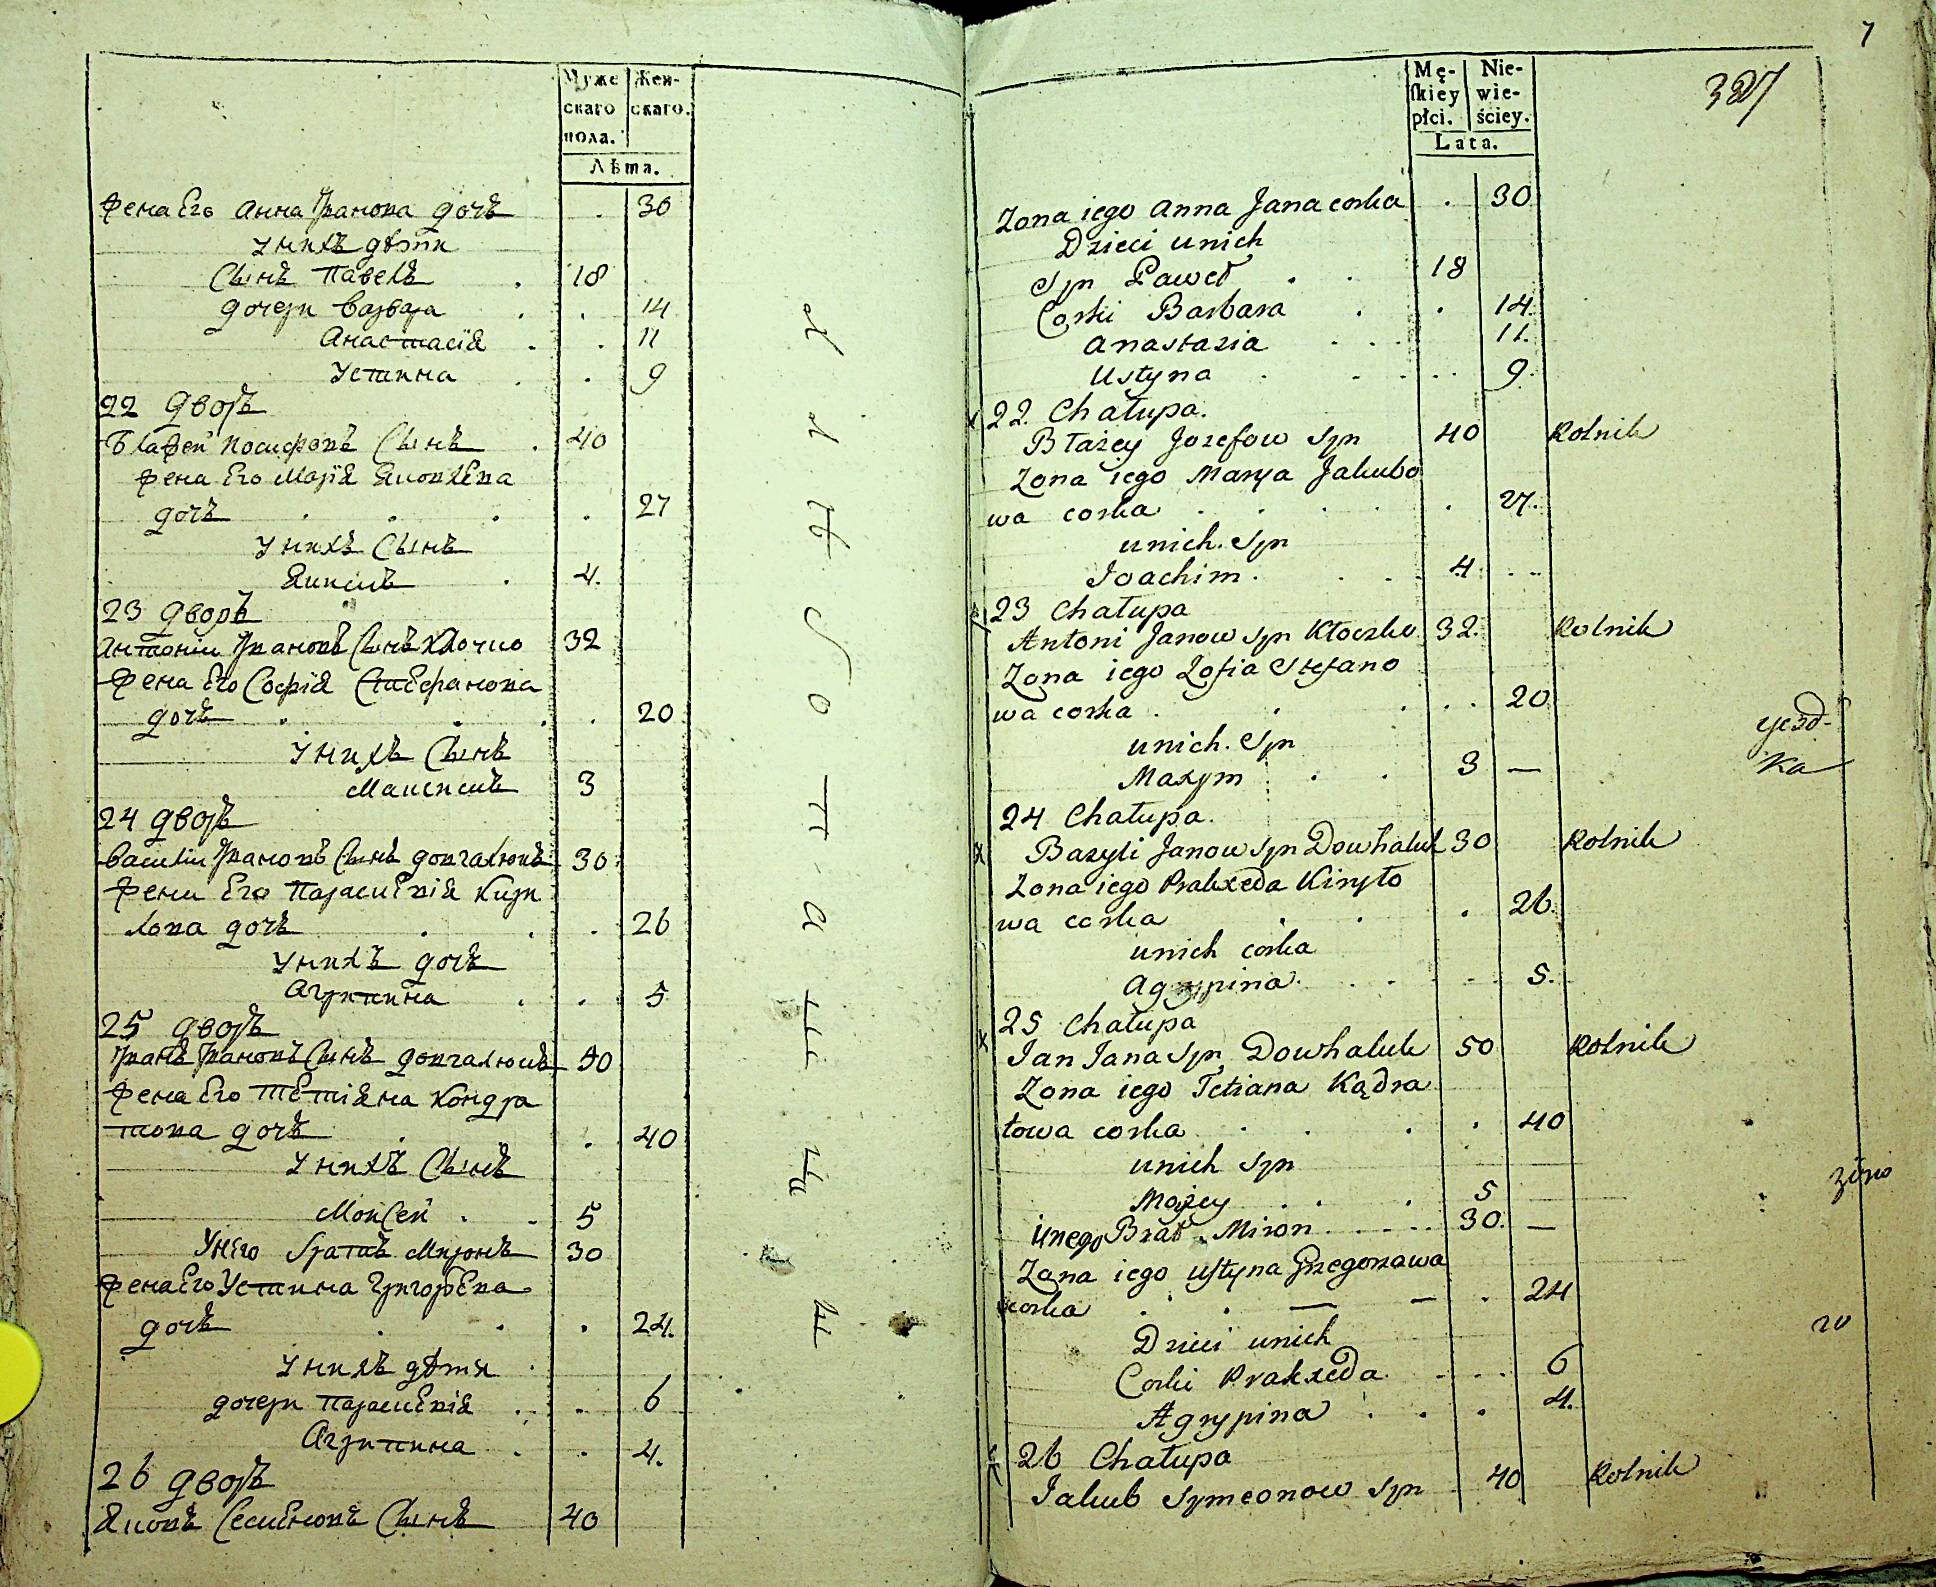 Муже
скаго
пола.
Жен-
скаго.
Лѣта.
жена Его Анна Иванова дочь . 30
У нихъ дѣти
Сынъ Павелъ . 18
дочери Варвара . . 14
Анастасія . . 11
Устина . . 9
22 дворъ
Блажей Иосифовъ Сынъ . 40
жена Его Марія Яковлева
дочь . . . . 27
У нихъ Сынъ
Якимъ . 4.
23 дворъ
Антоній Ивановъ Сынъ Клочко 32
жена Его Софія Стефанова
дочь . . . . 20
У нихъ Сынъ
Максимъ 3
24 дворъ
Василій Ивановъ Сынъ довгалюкъ 30
жена Его Параскевія Кири
лова дочь . . . 26
У нихъ дочь
Агрипина . . 5
25 дворъ
Иванъ Ивановъ Сынъ довгалюкъ 50
жена Его Тетіяна Кондра
това дочь . . 40
У нихъ Сынъ
Моисей . . 5
У него братъ Миронъ 30
жена Его Устина Григорьева
дочь . . . 24.
У нихъ дѣти
дочери Параскевія . . 6
Агрипина . . 4.
26 дворъ
Яковъ Семеновъ Сынъ 40
7
387
Mę-
ſkiey
płci.
Nie-
wie-
ściey.
Lata.
Zona iego Anna Jana corka . 30
Dzieci unich
Syn Paweł . . 18
Corki Barbara . . 14.
Anastazia . . . 11.
Ustyna . . . . . 9.
22. Chałupa.
Błażey Jozefow Syn 40 Rolnik
Zona iego Marya Jakubo
wa corka . . . . . 27.
unich. Syn
Joachim. . . . 4 . . .
23 Chałupa
Antoni Janow Syn Kłoczko 32. Rolnik
Zona iego Zofia Stefano
wa corka . . . . . 20
unich. Syn
Maxym . . 3 —
24 Chałupa.
Bazyli Janow Syn Dowhaluk 30 Rolnik
Zona iego Praxeda Kiryło
wa corka . . . 26.
unich corka
Agrypina. . . . . 5.
25 Chałupa
Jan Jana Syn Dowhaluk 50 Rolnik
Zona iego Tetiana Kądra
towa corka . . . . 40
unich Syn
Możey . . . 5
Unego Brat Miron . . . . . 30. —
Zona iego Ustyna Grzegorzawa
corka . . — — . 24
Dzieci unich
Corki Prakxeda . . . . 6
Agrypina . . . 4.
26 Chałupa
Jakub Symeonow Syn 40 Rolnik